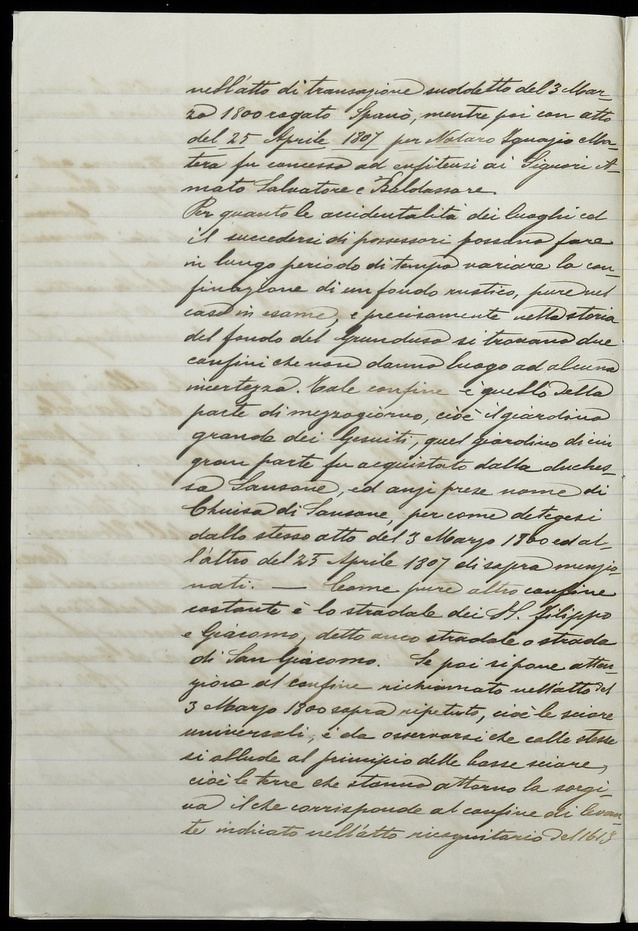 nell'atto di transazione suddetto del 3 Mar-
zo 1800 rogato Spanò, mentre poi con atto
del 25 Aprile 1807 per Notaro Ignazio Ma-
tera fu concesso ad enfiteusi ai Signori A-
mato Salvatore e Baldassare.
Per quanto le accidentalità dei luoghi ed
il succedersi di possessori possano fare
in lungo periodo di tempo variare la con-
finazione di un fondo rustico, pure nel
caso in esame, e precisamente nella storia
del fondo del si trovano due
confini che non danno luogo ad alcuna
incertezza. Tale confine è quello della
parte di mezzogiorno, cioè il giardino
grande dei Gesuiti, quel giardino di cui
gran parte fu acquistato dalla duches-
sa Sansone, ed anzi prese nome di
Chiusa di Sansone, per come detegesi
dallo stesso atto del 3 Marzo 1800 ed al-
l'altro del 25 Aprile 1807 di sopra menzio-
nati. — Come pure altro confine
costante è lo stradale dei SS. Filippo
e Giacomo, detto anco stradale o strada
di San Giacomo. Se poi si pone atten-
zione al confine richiamato nell'atto del
3 Marzo 1800 sopra ripetuto, cioè le sciare
universali, è da osservarsi che colle stesse
si allude al principio delle basse sciare,
cioè le terre che stanno attorno la sorgi-
va il che corrisponde al confine di levan-
te indicato nell'atto del 1618